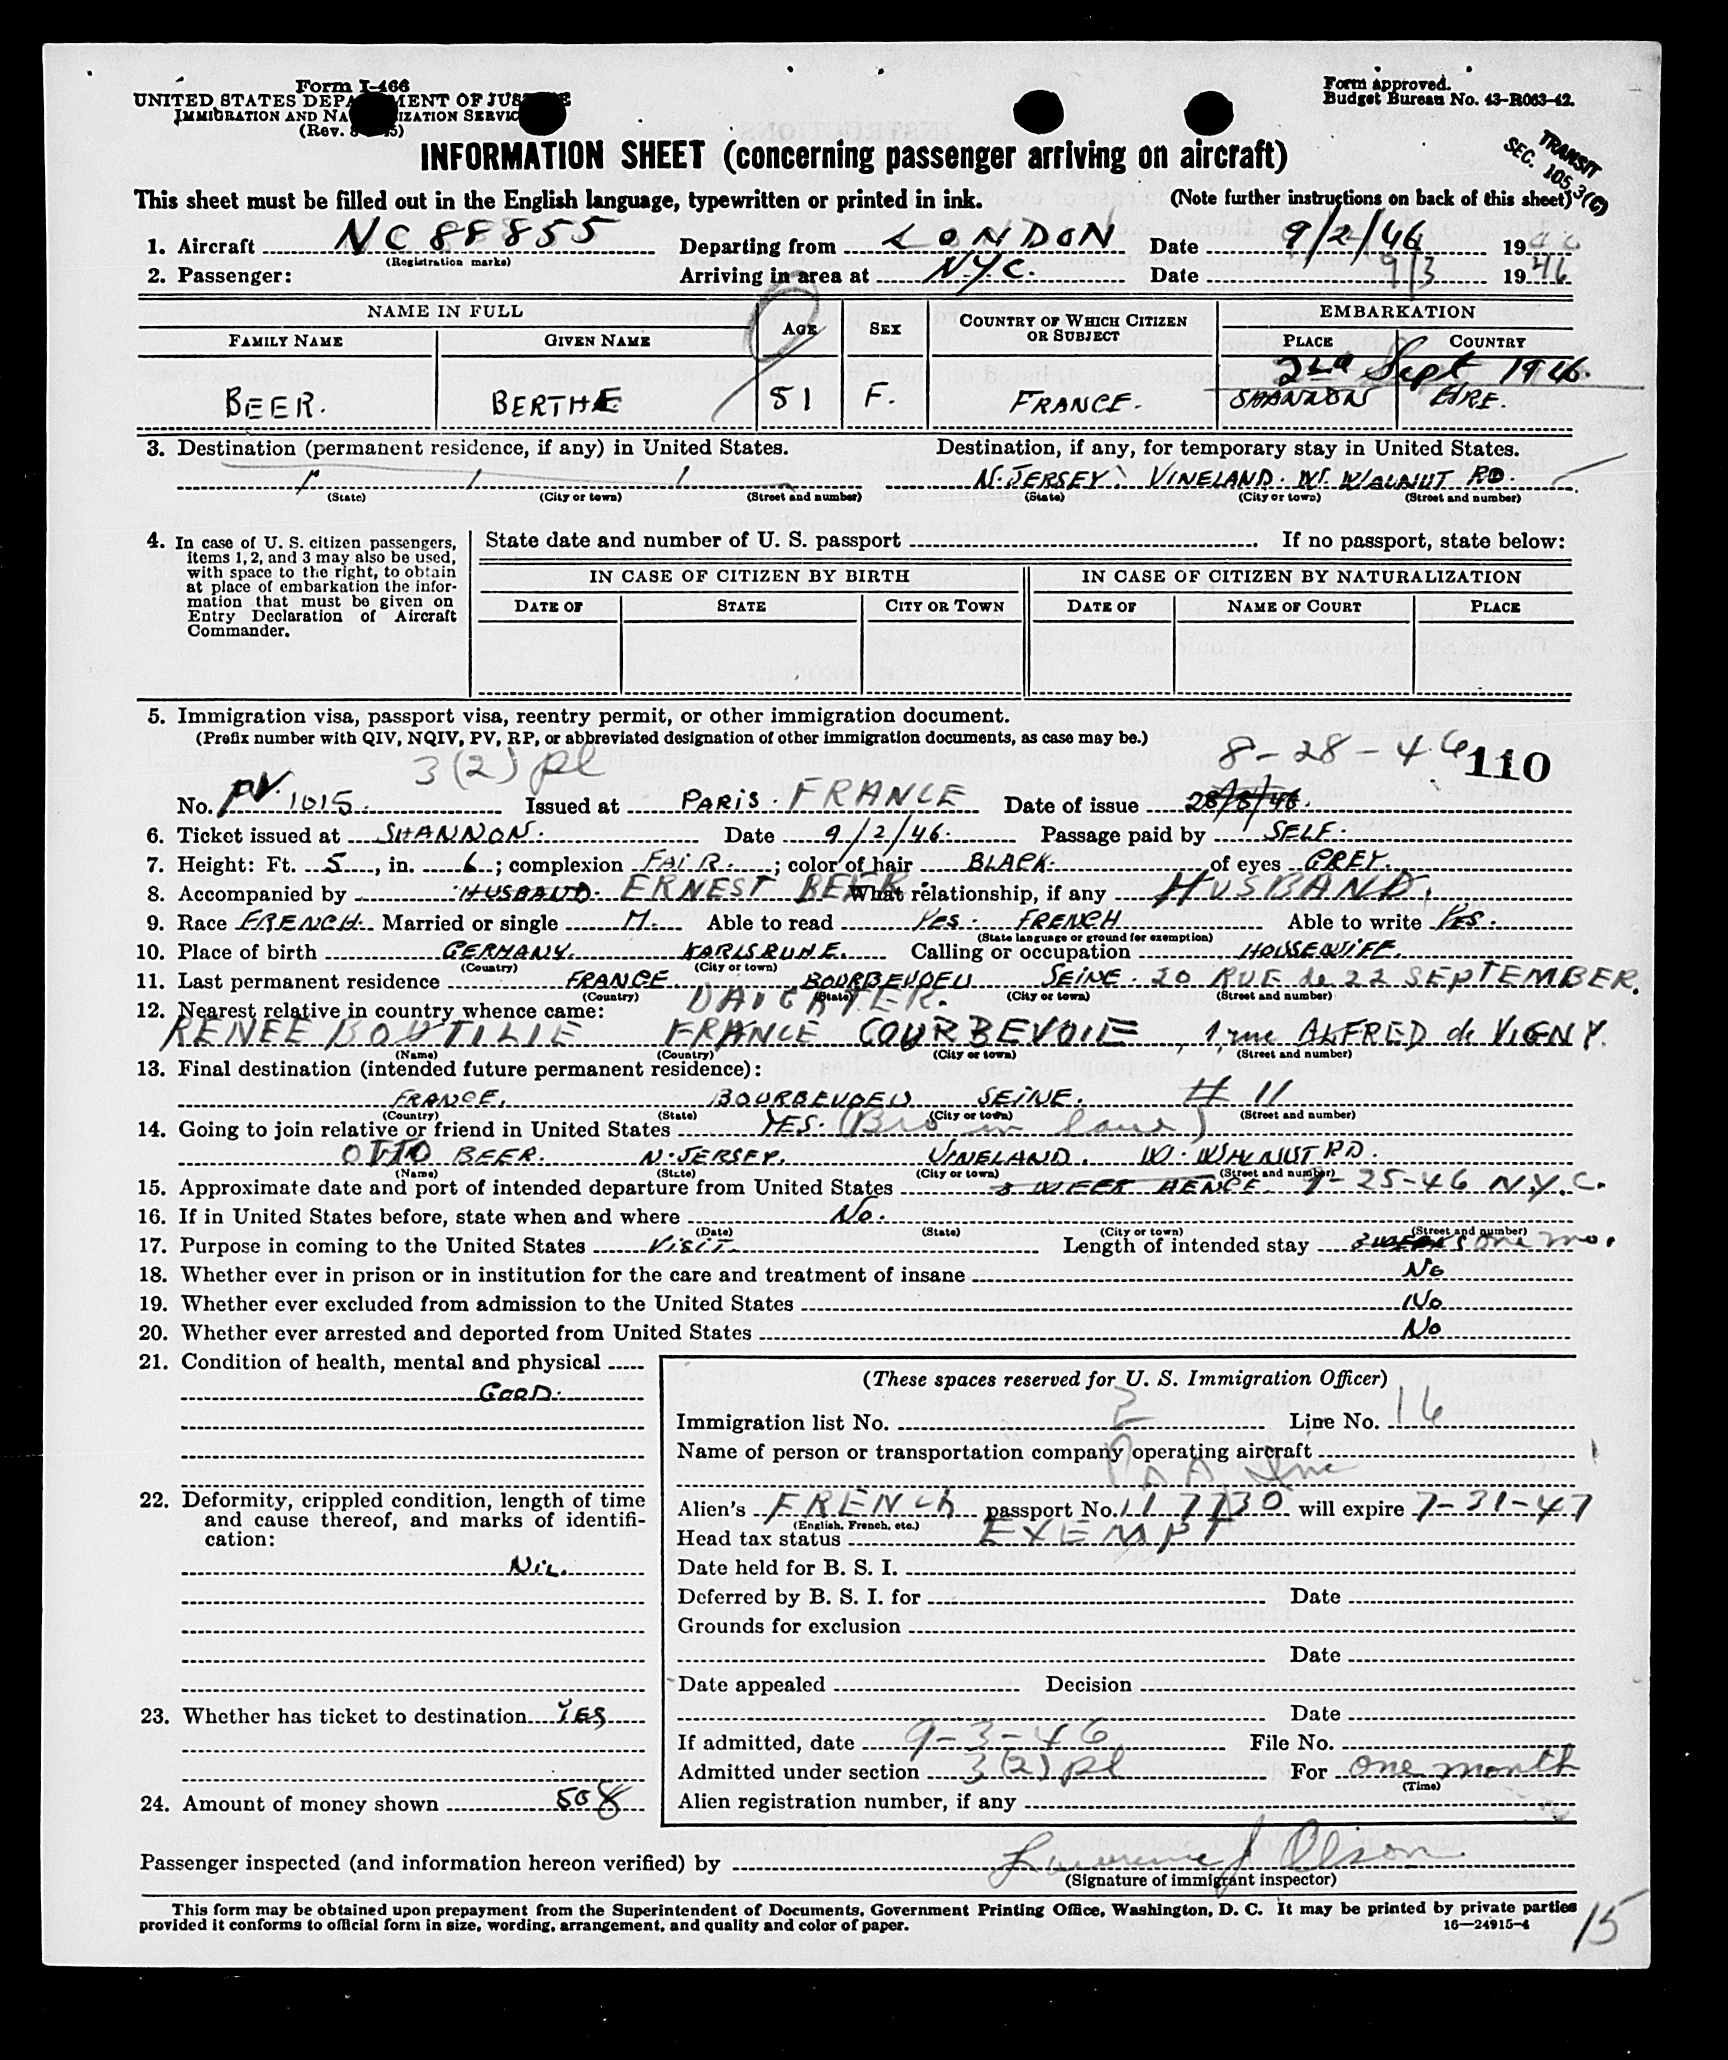 Form I-466
Form approved.
UNITED STATES DEPARTMENT OF JUSTICE
Budget Bureau No. 43-R063-42.
IMMIGRATION AND NATURALIZATION SERVICE
(Rev.
TRANSIT
SEC. 105.3(C)
INFORMATION SHEET (concerning passenger arriving on aircraft)
This sheet must be filled out in the English language, typewritten or printed in ink. (Note further instructions on back of this sheet)
1. Aircraft NC 88855 Departing from LONDON Date 9/2/46 19
(Registration marks)
2. Passenger: Arriving in area at NYC. Date 9/3 1946
NAME IN FULL AGE SEX COUNTRY OF WHICH CITIZEN OR SUBJECT EMBARKATION
FAMILY NAME GIVEN NAME PLACE COUNTRY
2nd Sept 1946.
BEER. BERTHE 51 F. FRANCE. SHANNON EIRE.
3. Destination (permanent residence, if any) in United States. Destination, if any, for temporary stay in United States.
N. JERSEY. VINELAND. W. WALNUT RD.
(State) (City or town) (Street and number) (State) (City or town) (Street and number)
4. In case of U. S. citizen passengers, items 1, 2, and 3 may also be used, with space to the right, to obtain at place of embarkation the information that must be given on Entry Declaration of Aircraft Commander.
State date and number of U. S. passport If no passport, state below:
IN CASE OF CITIZEN BY BIRTH IN CASE OF CITIZEN BY NATURALIZATION
DATE OF STATE CITY OR TOWN DATE OF NAME OF COURT PLACE
5. Immigration visa, passport visa, reentry permit, or other immigration document.
(Prefix number with QIV, NQIV, PV, RP, or abbreviated designation of other immigration documents, as case may be.)
3(2) pl 8-28-46 110
No. PV. 1015. Issued at PARIS. FRANCE Date of issue 28/8/46.
6. Ticket issued at SHANNON. Date 9/2/46. Passage paid by SELF.
7. Height: Ft. 5, in. 6; complexion FAIR. ; color of hair BLACK. of eyes GREY.
8. Accompanied by HUSBAND. ERNEST BEER. What relationship, if any HUSBAND.
9. Race FRENCH. Married or single M. Able to read YES. FRENCH Able to write YES.
(State language or ground for exemption)
10. Place of birth GERMANY. KARLSRUHE. Calling or occupation HOUSEWIFE.
(Country) (City or town)
11. Last permanent residence FRANCE. BOURBEVOEU SEINE. 20 RUE de 22 SEPTEMBER.
(Country) (State) (City or town) (Street and number)
DAUGHTER.
12. Nearest relative in country whence came:
RENEE BOUTILIE FRANCE COURBEVOIE, 1, rue ALFRED de VIGNY.
(Name) (Country) (City or town) (Street and number)
13. Final destination (intended future permanent residence):
FRANCE. BOURBEVOEU SEINE. # 11
(Country) (State) (City or town) (Street and number)
14. Going to join relative or friend in United States YES. (Bro in law)
OTTO BEER. N. JERSEY. VINELAND. W. WALNUT RD.
(Name) (State) (City or town) (Street and number)
15. Approximate date and port of intended departure from United States 3 WEEK HENCE. 9-25-46 N.Y.C.
16. If in United States before, state when and where No.
(Date) (State) (City or town) (Street and number)
17. Purpose in coming to the United States VISIT. Length of intended stay 3 WEEKS one mo.
18. Whether ever in prison or in institution for the care and treatment of insane No
19. Whether ever excluded from admission to the United States No
20. Whether ever arrested and deported from United States No
21. Condition of health, mental and physical
GOOD.
22. Deformity, crippled condition, length of time and cause thereof, and marks of identification:
NIL.
23. Whether has ticket to destination YES
24. Amount of money shown 50 $
(These spaces reserved for U. S. Immigration Officer)
Immigration list No. 2 Line No. 16
Name of person or transportation company operating aircraft
PAA Inc
Alien's FRENCH passport No. 117730 will expire 7-31-47
(English, French, etc.)
Head tax status EXEMPT
Date held for B. S. I.
Deferred by B. S. I. for Date
Grounds for exclusion
Date
Date appealed Decision
Date
If admitted, date 9-3-46 File No.
Admitted under section 3(2) pl For one month
(Time)
Alien registration number, if any
Passenger inspected (and information hereon verified) by Lawrence J Olson
(Signature of immigrant inspector)
This form may be obtained upon prepayment from the Superintendent of Documents, Government Printing Office, Washington, D. C. It may be printed by private parties
provided it conforms to official form in size, wording, arrangement, and quality and color of paper. 16—24915-4
15